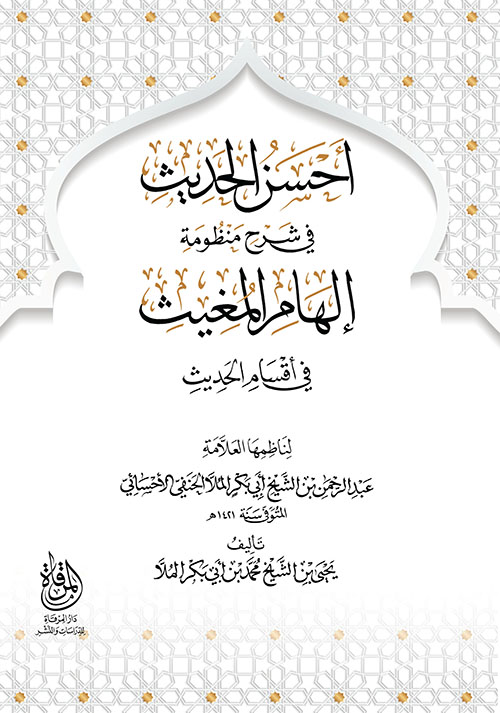 أَحْسَنُ الحَدِيثِ
في شَرْحِ مَنْظُومَةِ
إِلْهَامِ المُغِيثِ
في أَقْسَامِ الحَدِيثِ
لِنَاظِمِهَا العَلَّامَةِ
عَبْدِ الرَّحْمٰنِ بْنِ الشَّيْخِ أَبِي بَكْرٍ المُلَّا الحَنَفِيِّ الأَحْسَائِيِّ
المُتَوَفَّى سَنَةَ ١٤٢١هـ
تَأْلِيفُ
يَحْيَى بْنِ الشَّيْخِ مُحَمَّد بْنِ أَبِي بَكْرٍ المُلَّا
المرقاة
دَارُ المِرْقَاةِ
لِلدِّرَاسَاتِ وَالنَّشْرِ